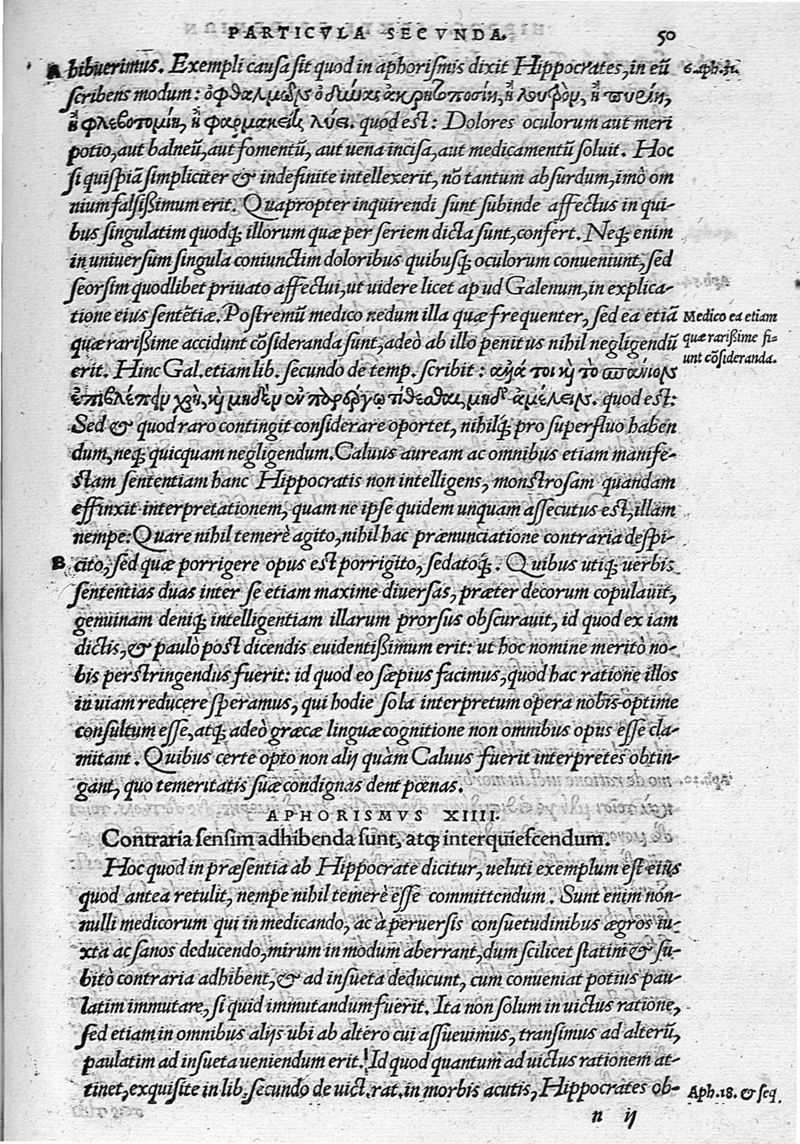 PARTICVLA SECVNDA. 50
A hibuerimus. Exempli causa sit quod in aphorismis dixit Hippocrates, in eũ 6. Aph. 31.
scribens modum: ὀφθαλμῶν ὀδύνας ἀκρηποποσίη, ἢ λουτρὸν, ἢ πυρίη,
ἢ φλεβοτομίη, ἢ φαρμακείη λύει. quod est: Dolores oculorum aut meri
potio, aut balneũ, aut fomentũ, aut uena incisa, aut medicamentũ soluit. Hoc
si quispiã simpliciter & indefinite intellexerit, nõ tantum absurdum, imò om
nium falsißimum erit. Quapropter inquirendi sunt subinde affectus in qui-
bus singulatim quodq; illorum quæ per seriem dicta sunt, confert. Neq; enim
in uniuersum singula coniunctim doloribus quibusq; oculorum conueniunt, sed
seorsim quodlibet priuato affectui, ut uidere licet apud Galenum, in explica-
tione eius sentẽtiæ. Postremũ medico nedum illa quæ frequenter, sed ea etiã Medico ea etiam
quæ rarißime accidunt cõsideranda sunt, adeò ab illo penitus nihil negligendũ quæ rarißime fi-
erit. Hinc Gal. etiam lib. secundo de temp. scribit: τοι καὶ τὸ unt cõsideranda.
ἐπιβλέπειν χρὴ, καὶ μηδὲν τίθεσθαι, μηδ' ἀμελεῖν. quod est:
Sed & quod raro contingit considerare oportet, nihilq; pro superfluo haben
dum, neq; quicquam negligendum. Caluus auream ac omnibus etiam manife-
stam sententiam hanc Hippocratis non intelligens, monstrosam quandam
effinxit interpretationem, quam ne ipse quidem unquam assecutus est, illam
nempe: Quare nihil temerè agito, nihil hac prænunciatione contraria despi-
B cito, sed quæ porrigere opus est porrigito, sedatoq;. Quibus utiq; uerbis
sententias duas inter se etiam maxime diuersas, præter decorum copulauit,
genuinam deniq; intelligentiam illarum prorsus obscurauit, id quod ex iam
dictis, & paulò post dicendis euidentißimum erit: ut hoc nomine meritò no-
bis perstringendus fuerit: id quod eo sæpius facimus, quod hac ratione illos
in uiam reducere speramus, qui hodie sola interpretum opera nobis optime
consultum esse, atq; adeò græcæ linguæ cognitione non omnibus opus esse cla-
mitant. Quibus certe opto non alij quàm Caluus fuerit interpretes obtin-
gant, quo temeritatis suæ condignas dent pœnas.
APHORISMVS XIIII.
Contraria sensim adhibenda sunt, atq; interquiescendum.
Hoc quod in præsentia ab Hippocrate dicitur, ueluti exemplum est eius
quod antea retulit, nempe nihil temerè esse committendum. Sunt enim non-
nulli medicorum qui in medicando, ac à peruersis consuetudinibus ægros iu-
xta ac sanos deducendo, mirum in modum aberrant, dum scilicet statim & su-
bitò contraria adhibent, & ad insueta deducunt, cum conueniat potius pau-
latim immutare, si quid immutandum fuerit. Ita non solum in uictus ratione,
sed etiam in omnibus alijs ubi ab altero cui assueuimus, transimus ad alterũ,
paulatim ad insueta ueniendum erit. Id quod quantum ad uictus rationem at-
tinet, exquisite in lib. secundo de uict. rat. in morbis acutis, Hippocrates ob- Aph. 18. & seq
n ij